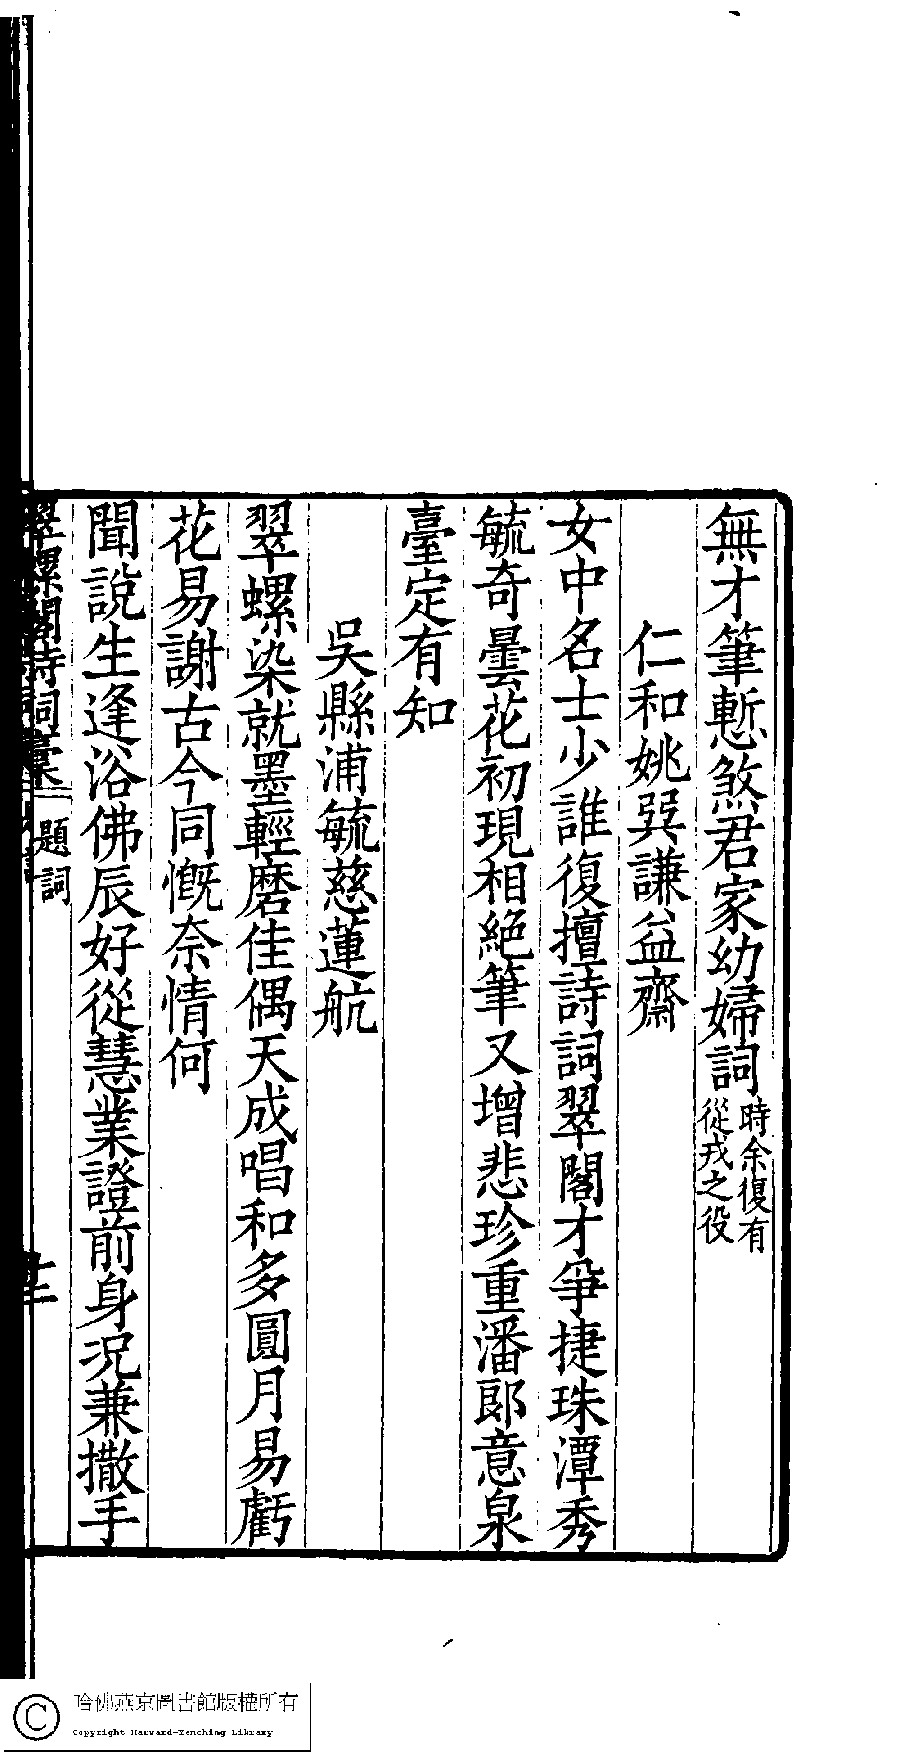 無才筆慙煞君家幼婦詞時余復有從戎之役
仁和姚㢲謙益齋
女中名士少誰復擅詩詞翠閣才爭捷珠潭秀
毓奇曇花初現相絕筆又增悲珍重潘郎意泉
臺定有知
吳縣浦毓慈蓮航
翠螺染就墨輕磨佳偶天成唱和多圓月易虧
花易謝古今同慨奈情何
聞說生逢浴佛辰好從慧業證前身況兼撒手
翠螺閣詩詞稾 題詞
哈佛燕京圖書館版權所有
Copyright Harvard-Yenching Library